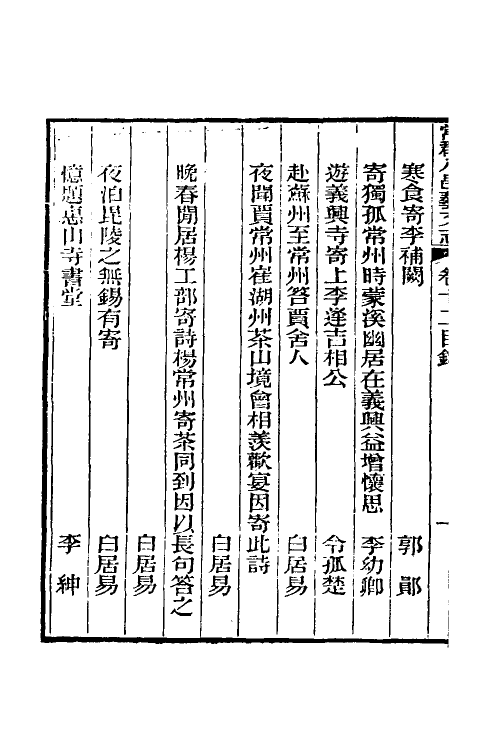 常郡八邑藝文志 卷十二目錄 一
寒食寄李補闕 郭鄖
寄獨孤常州時蒙溪幽居在義興益增懷思 李幼卿
遊義興寺寄上李逢吉相公 令孤楚
赴蘇州至常州答賈舍人 白居易
夜聞賈常州崔湖州茶山境會相羨歡宴因寄此詩
白居易
晚春閒居楊工部寄詩楊常州寄茶同到因以長句答之
白居易
夜泊毘陵之無錫有寄 白居易
憶題惠山寺書堂 李紳